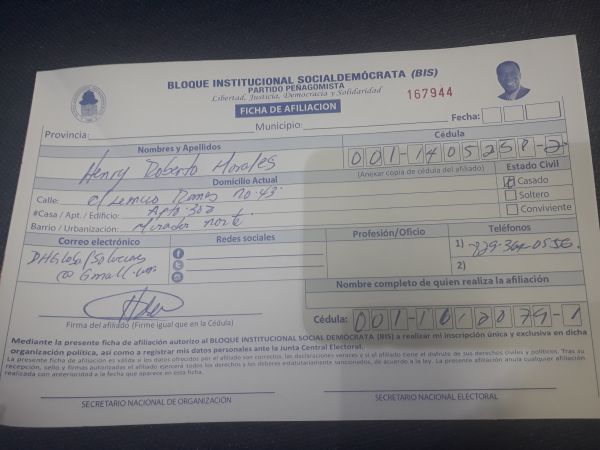 BLOQUE INSTITUCIONAL SOCIALDEMÓCRATA (BIS)
PARTIDO PEÑAGOMISTA
Libertad, Justicia, Democracia y Solidaridad
167944
FICHA DE AFILIACION
Fecha:
Provincia: Municipio:
Nombres y Apellidos Cédula
Henry Roberto Morales 001-1405258-2
(Anexar copia de cédula del afiliado)
Domicilio Actual Estado Civil
Calle: No. 43. Casado
#Casa / Apt. / Edificio: Apto. 302 Soltero
Barrio / Urbanización: Mirador Norte. Conviviente
Correo electrónico Redes sociales Profesión/Oficio Teléfonos
@ Gmail.com 1)
2)
Nombre completo de quien realiza la afiliación
Firma del afiliado (Firme igual que en la Cédula) Cédula:
Mediante la presente ficha de afiliación autorizo al BLOQUE INSTITUCIONAL SOCIALDEMÓCRATA (BIS) a realizar mi inscripción única y exclusiva en dicha
organización política, así como a registrar mis datos personales ante la Junta Central Electoral.
La presente ficha de afiliación es válida si los datos ofrecidos por el afiliado son correctos, las declaraciones veraces y si el afiliado tiene el disfrute de sus derechos civiles y políticos. Tras su
recepción, sello y firmas autorizadas el afiliado ejercerá todos los derechos y los deberes estatutariamente sancionados, de acuerdo a la ley. La presente afiliación anula cualquier afiliación
realizada con anterioridad a la fecha que aparece en esta ficha.
SECRETARIO NACIONAL DE ORGANIZACIÓN SECRETARIO NACIONAL ELECTORAL